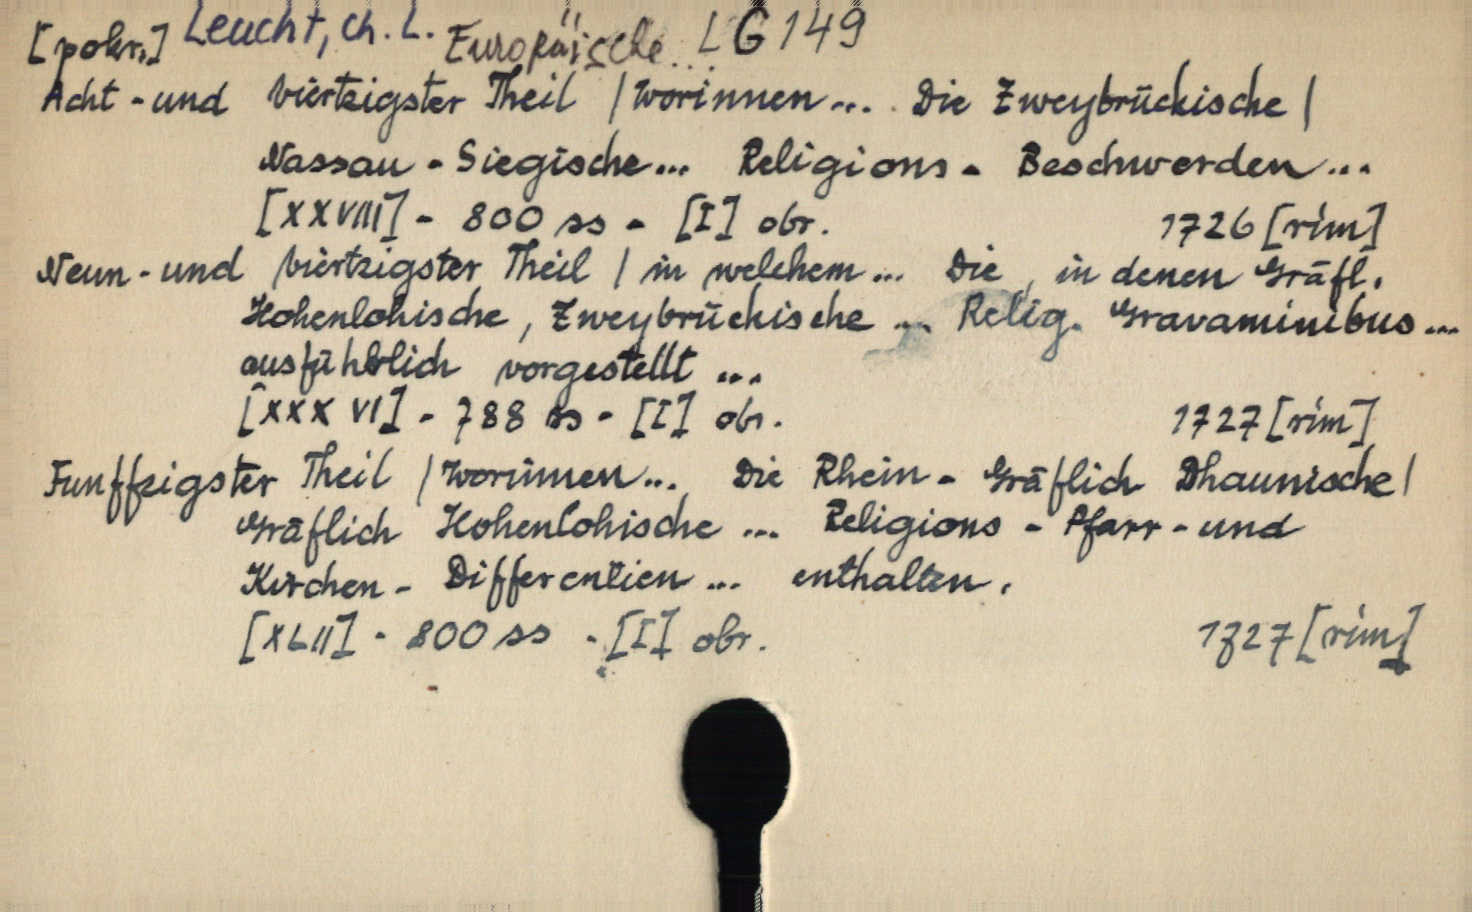 [pokr.] Leucht, Ch. L. Europäische... LG 149
Acht-und viertzigster Theil / worinnen... Die Zweybrückische /
Nassau-Siegische... Religions-Beschwerden...
[XXVIII] - 800 ss - [I] obr. 1726 [rím]
Neun-und viertzigster Theil / in welchem... Die, in denen Gräfl.
Hohenlohische, Zweybrückische ... Relig. Gravaminibus...
ausführlich vorgestellt ...
[XXXVI] - 788 ss - [I] obr. 1727 [rím]
Funffzigster Theil / worinnen... Die Rhein-Gräflich Dhaunische /
Gräflich Hohenlohische ... Religions-Pfarr-und
Kirchen-Differentien ... enthalten.
[XLII] - 800 ss - [I] obr. 1727 [rím]